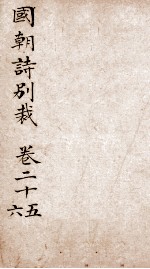 國朝詩别裁 卷二十五
六